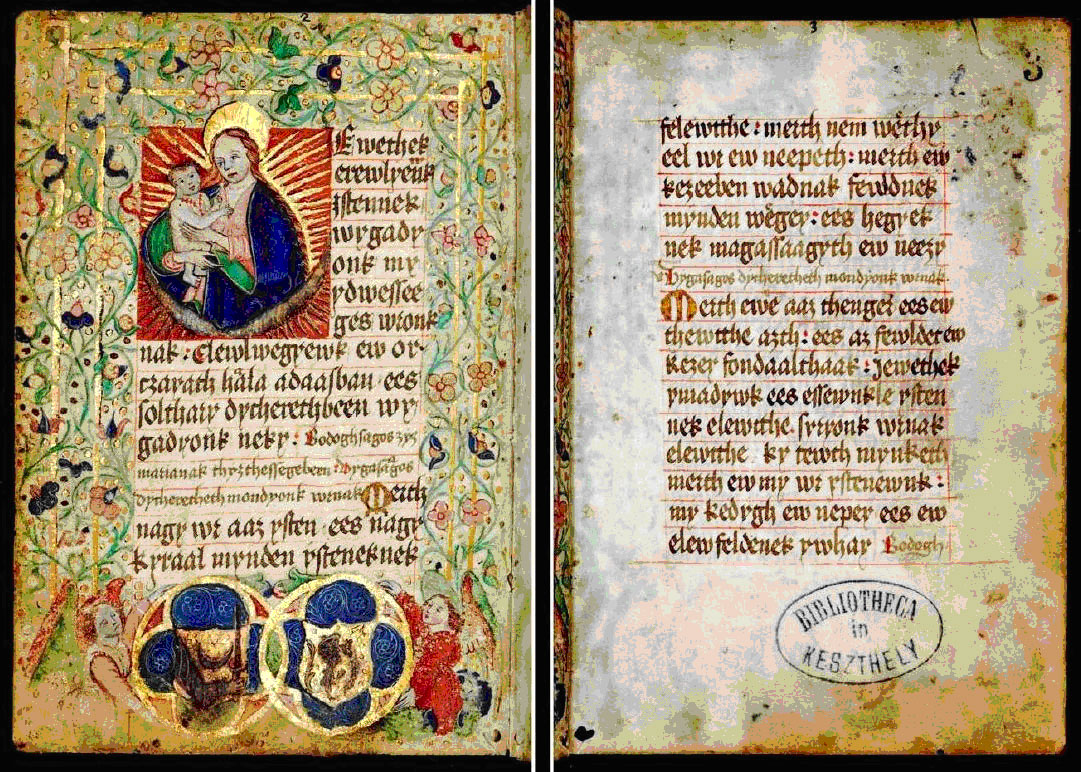 2
Ewethek
erewlyenk
jstennek
wygady
onk my
ydwessee
ges wronk
nak : elewlwegyewk ew or
czayath hala adaasban ees
solthary dycherethbeen wy
gadyonk neky : Bodoghsagos zyz
marianak thyzthessegebeen : Vygasagos
dycheretheth mondyonk wrnak Merth
nagy wr aaz ysten ees nagy
kyraal mynden ysteneknek
3
3
felewtthe : merth nem wethy
eel wr ew neepeth : merth ew
kezeeben wadnak fewldnek
mynden wegey : ees hegyek
nek magassaagyth ew neezy
Vygasagos dycheretheth mondyonk wrnak
Merth ewe aaz thenger ees ew
thewtthe azth : ees az fewldet ew
kezey fondaalthaak : Jewethek
ymadywk ees essewnk le ysten
nek elewtthe syryonk wrnak
elewtthe ky tewth mynketh
merth ew my wr ystenewnk :
my kedygh ew nepey ees ew
elew feldenek ywhay Bodogh
BIBLIOTHECA
in
KESZTHELY